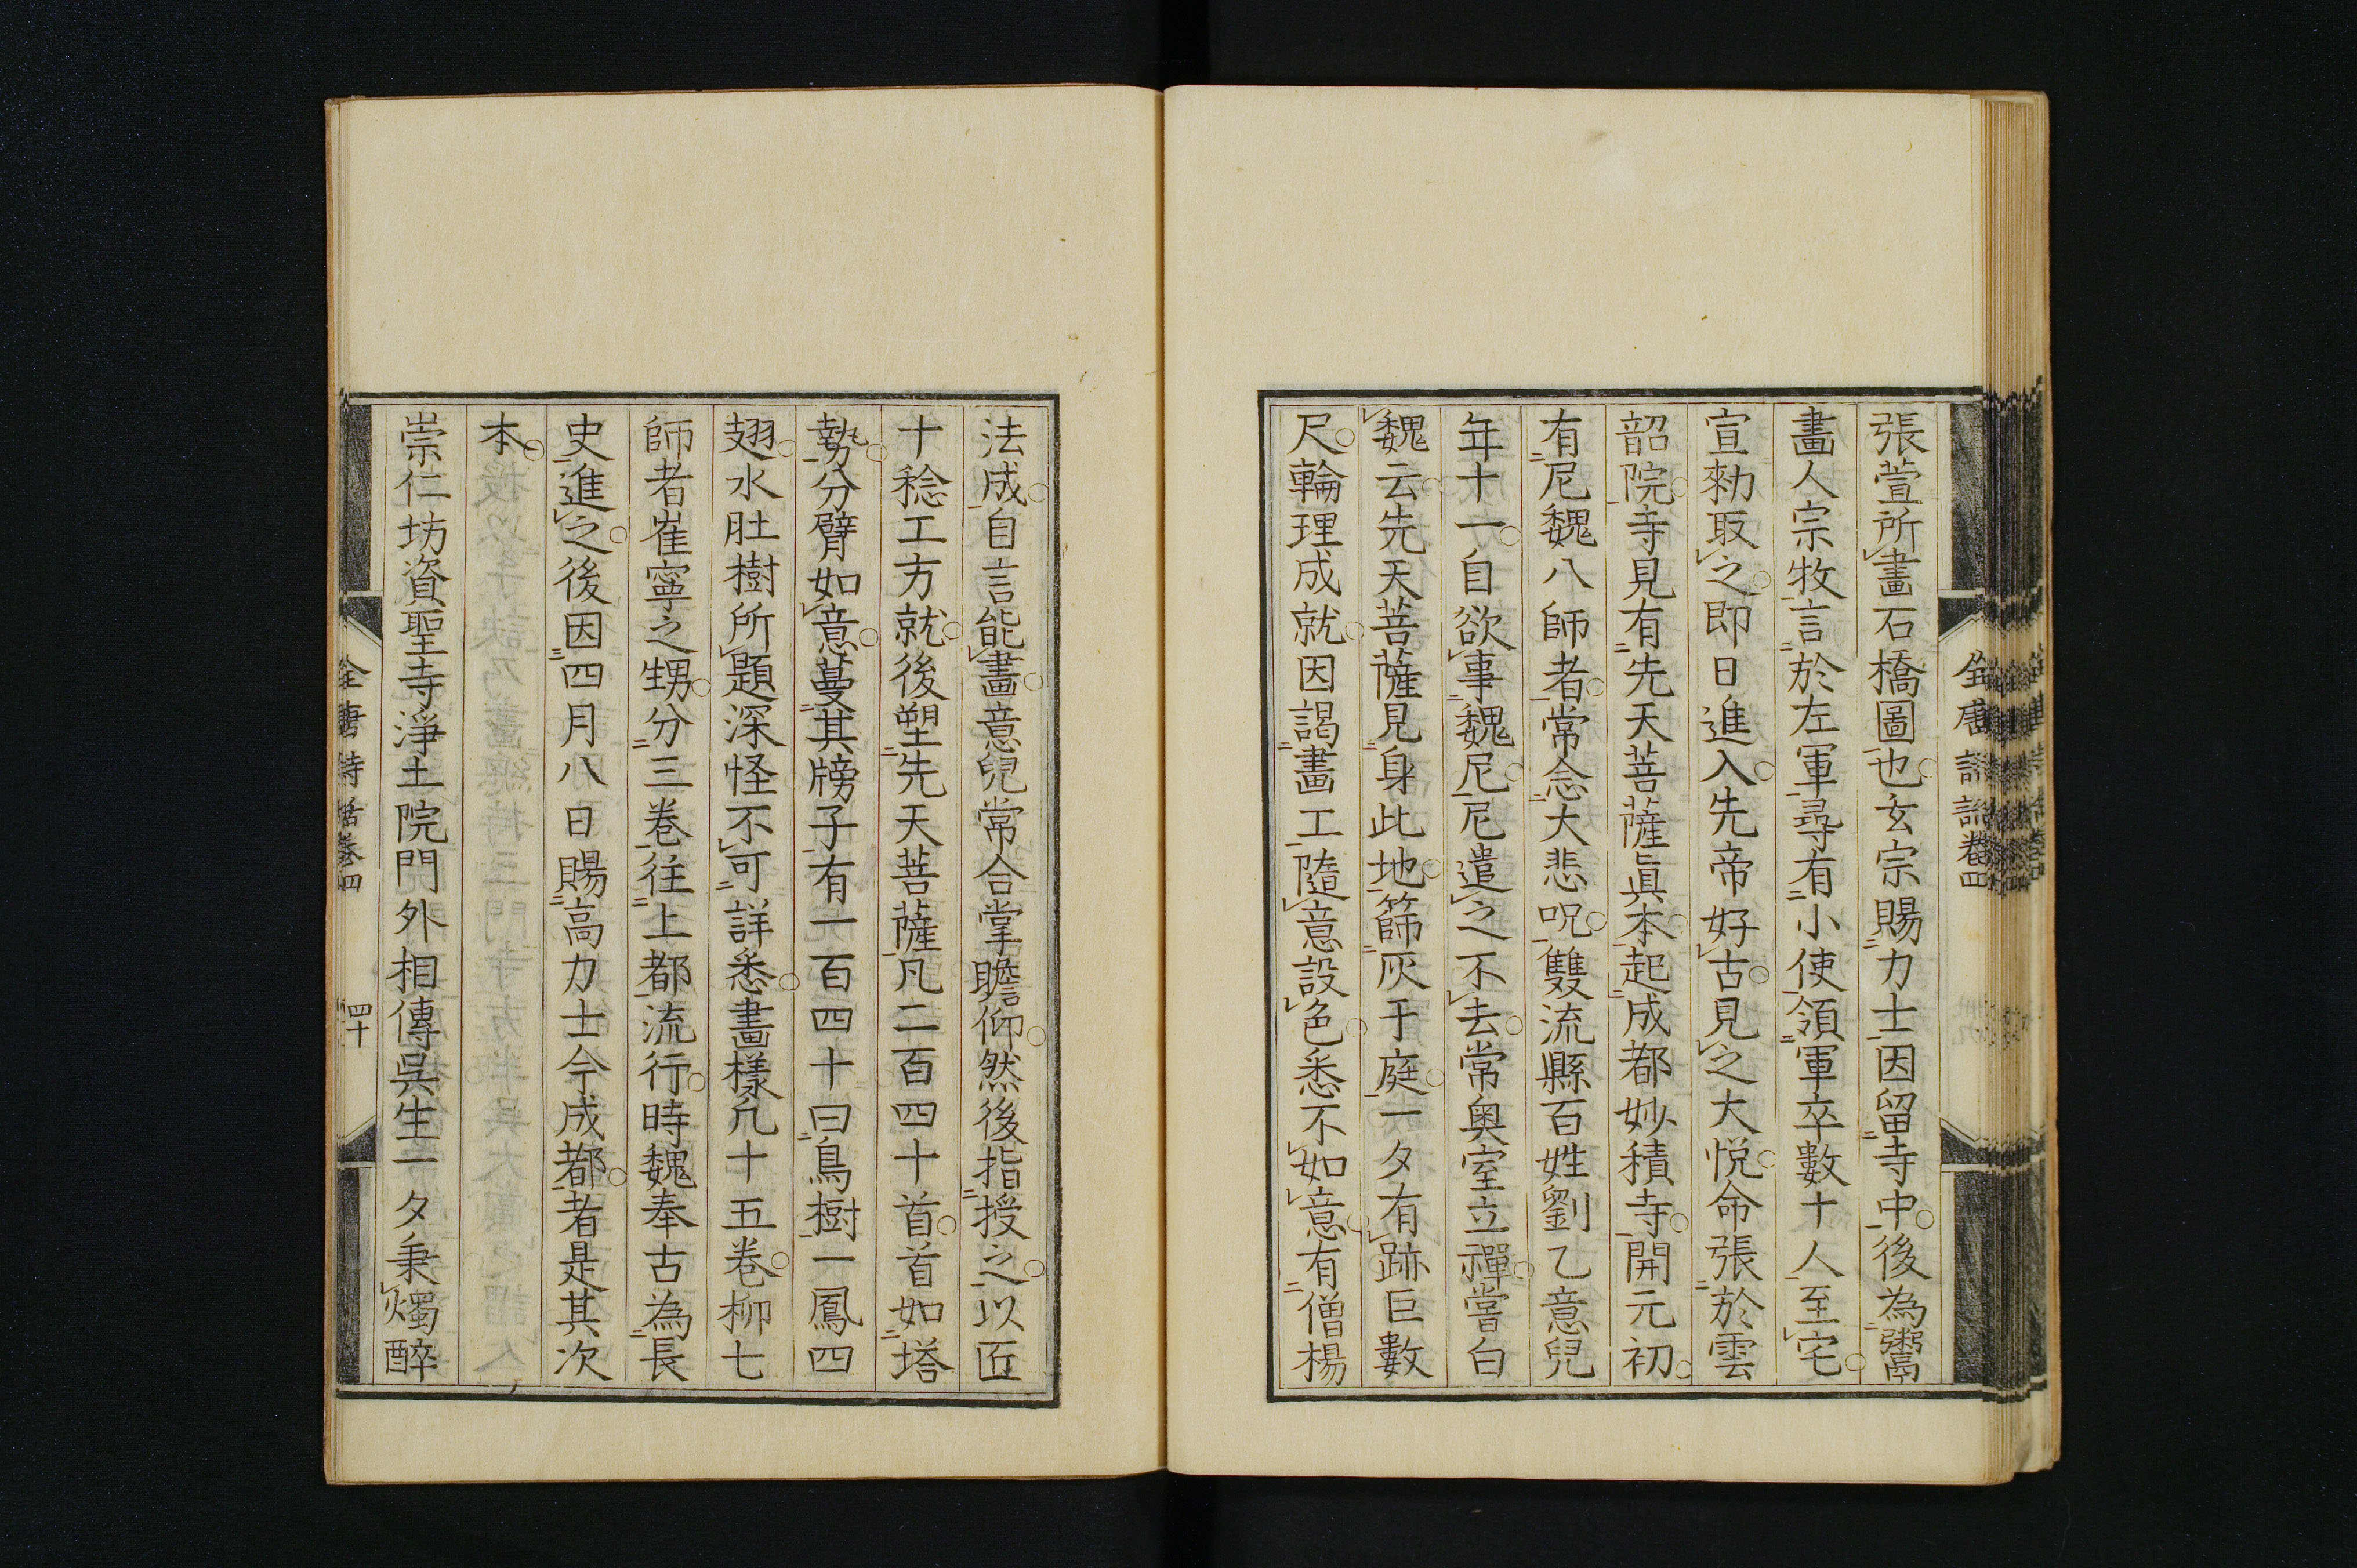 張萱所畫石橋圖也玄宗賜力士因留寺中後為鬻
畫人宗牧言於左軍尋有小使領軍卒數十人至宅
宣勑取之即日進入先帝好古見之大悅命張於雲
韶院寺見有先天菩薩眞本起成都妙積寺開元初
有尼魏八師者常念大悲呪雙流縣百姓劉乙意兒
年十一自欲事魏尼尼遣之不去常奥室立禪嘗白
魏云先天菩薩見身此地篩灰于庭一夕有跡巨數
尺輪理成就因謁畫工隨意設色悉不如意有僧楊
法成自言能畫意兒常合掌瞻仰然後指授之以匠
十稔工方就後塑先天菩薩凡二百四十首首如塔
勢分臂如意蔓其牓子有一百四十曰鳥樹一鳳四
翅水肚樹所題深怪不可詳悉畫樣凡十五巻柳七
師者崔寧之甥分三巻往上都流行時魏奉古為長
史進之後因四月八日賜高力士今成都者是其次
本
崇仁坊資聖寺淨土院門外相傳吳生一夕秉燭醉
全唐詩話巻四
四十